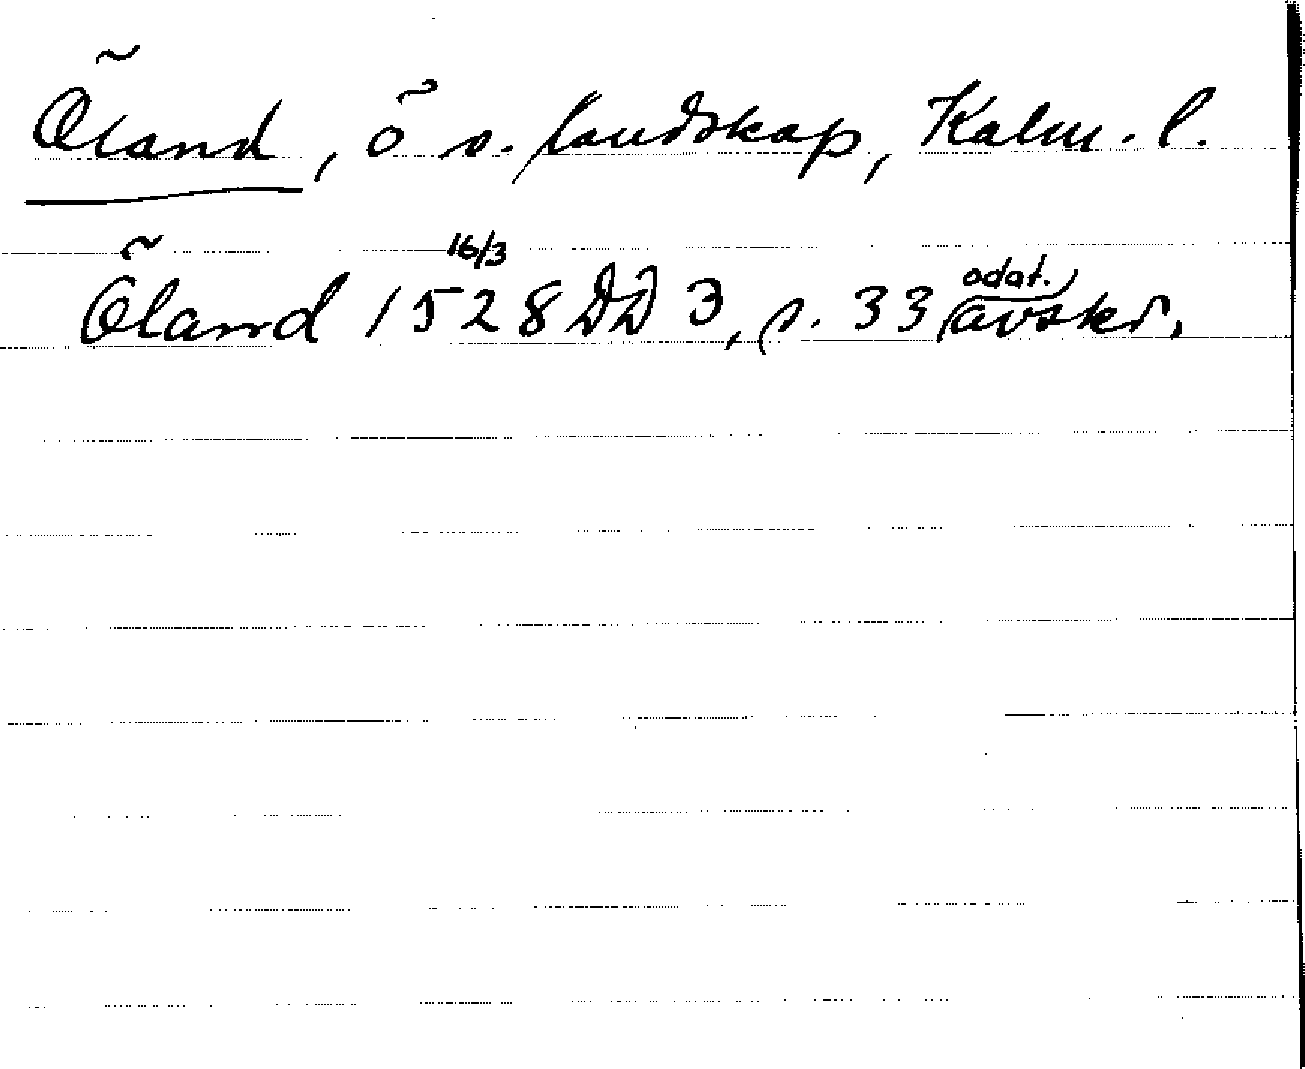 Öland, ö o. landskap, Kalm. l.
Öland 1528 16/3 DD 3, s. 33 odat. avskr.